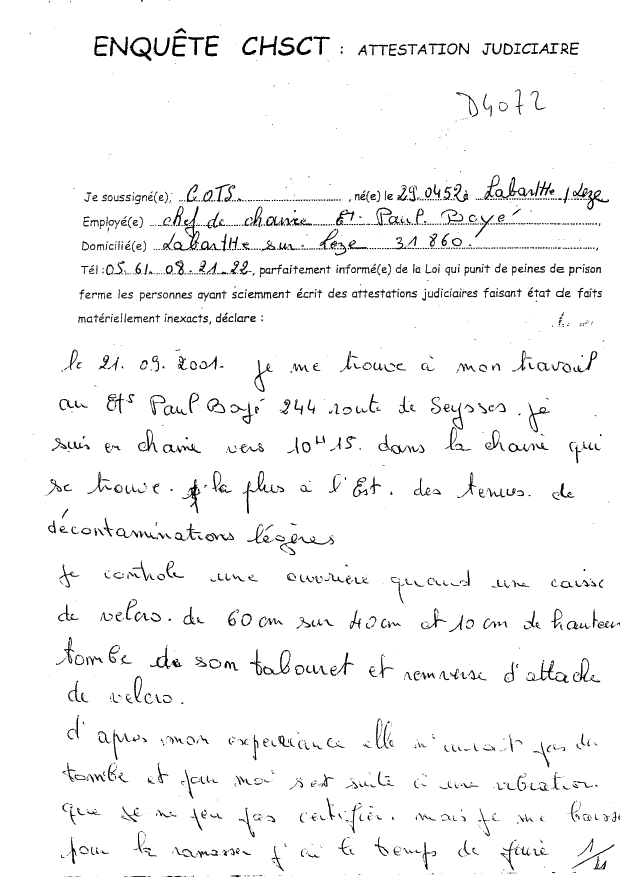 ENQUÊTE CHSCT : ATTESTATION JUDICIAIRE
D4072
Je soussigné(e), COTS. , né(e) le 29.0452 à Labarthe / Leze
Employé(e) chef de chaine Et. Paul. Boyé ,
Domicilié(e) Labarthe sur. Leze 31860. ,
Tél :05.61.08.21.22, parfaitement informé(e) de la Loi qui punit de peines de prison
ferme les personnes ayant sciemment écrit des attestations judiciaires faisant état de faits
matériellement inexacts, déclare :
le 21. 09. 2001. je me trouve à mon travail
au Ets Paul Boyé 244 route de Seysses. je
suis en chaine vers 10H15. dans la chaine qui
se trouve. la plus à l'Est. des tenues. de
décontaminations légères
Je controle une ouvrière quand une caisse
de velcro. de 60 cm sur 40 cm et 10 cm de hauteur
tombe de son tabouret et renverse d'attache
de velcro.
d'apres mon experiance elle n'aurait pas du
tombe et pour moi s'est suite à une vibration.
que je ne peu pas certifier. mais je me baisse
pour la ramasser j'ai le temps de faire 1/